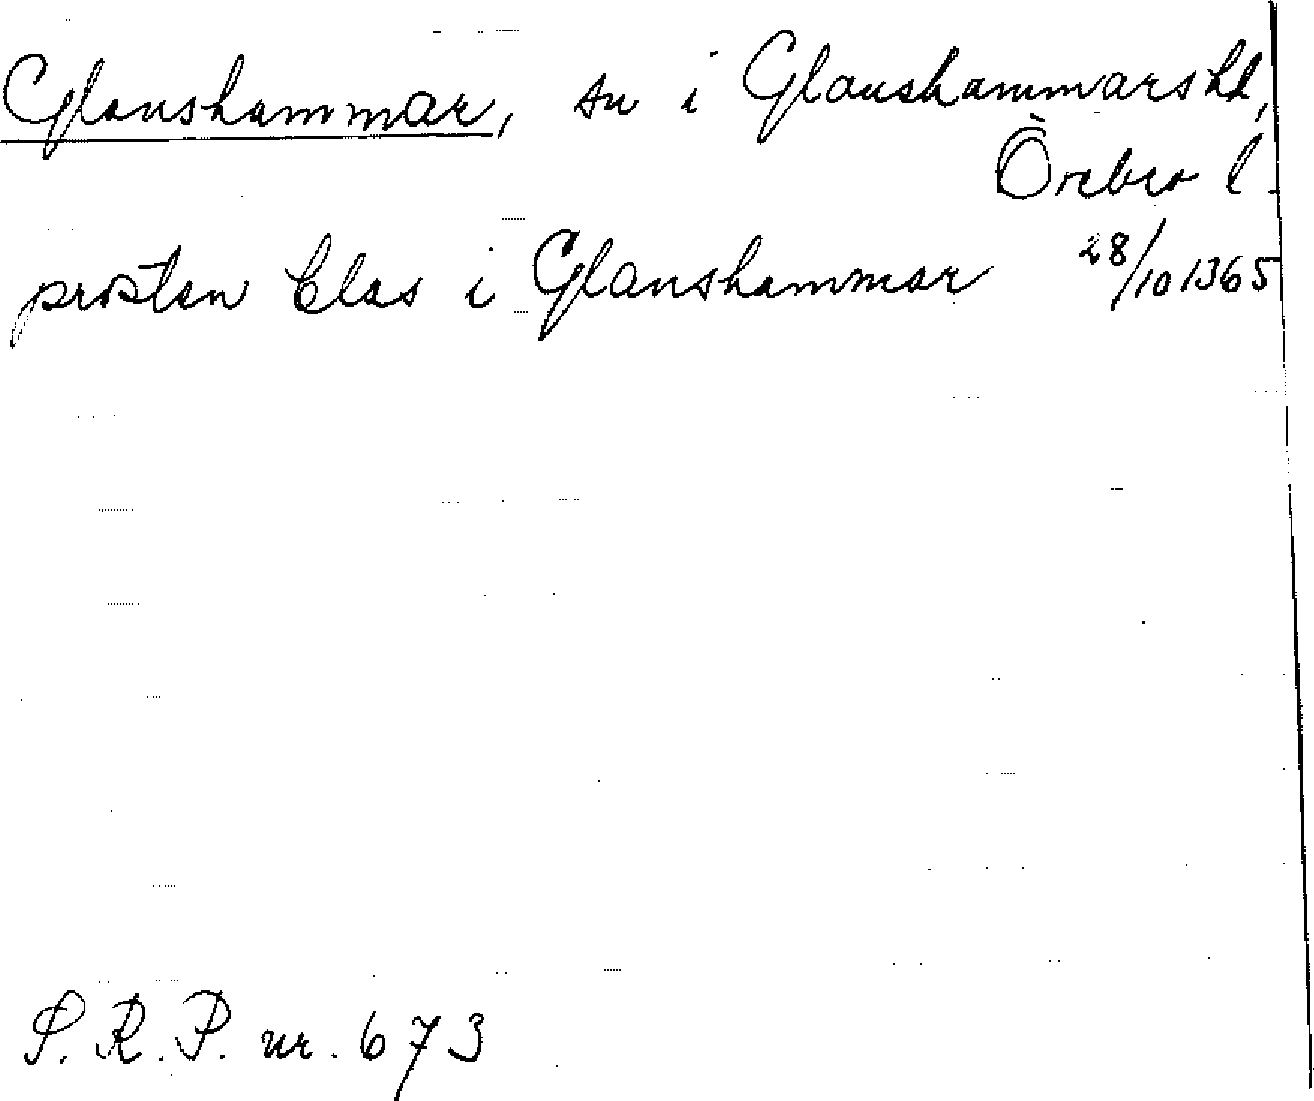 Glanshammar, sn i Glanshammars hd,
Örebro l.
prosten Clas i Glanshammar 28/10 1365
S.R.P. nr. 673